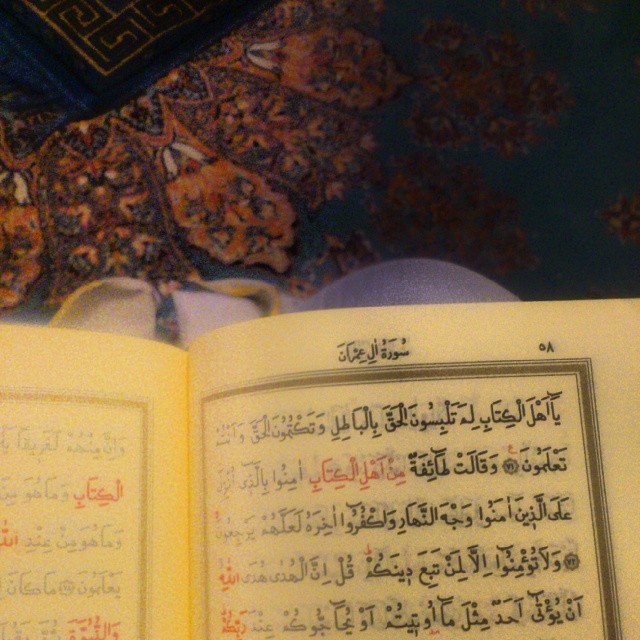 سُورَةُ اٰلِ عِمْرَانَ ٥٨
يَٓا اَهْلَ الْكِتَابِ لِمَ تَلْبِسُونَ الْحَقَّ بِالْبَاطِلِ وَتَكْتُمُونَ الْحَقَّ وَاَنْتُمْ
تَعْلَمُونَ وَقَالَتْ طَٓائِفَةٌ مِنْ اَهْلِ الْكِتَابِ اٰمِنُوا بِالَّذٓى اُنْزِلَ
عَلَى الَّذٖينَ اٰمَنُوا وَجْهَ النَّهَارِ وَاكْفُرُٓوا اٰخِرَهُ لَعَلَّهُمْ يَرْجِعُونَ
وَلَا تُؤْمِنُٓوا اِلَّا لِمَنْ تَبِعَ دٖينَكُمْ قُلْ اِنَّ الْهُدٰى هُدَى اللّٰهِ
اَنْ يُؤْتٰٓى اَحَدٌ مِثْلَ مَٓا اُو۫تٖيتُمْ اَوْ يُحَٓاجُّوكُمْ عِنْدَ رَبِّكُمْ
وَاِنَّ مِنْهُمْ لَفَرٖيقًا
الْكِتَابِ وَمَا هُوَ مِنَ
وَمَا هُوَ مِنْ عِنْدِ اللّٰهِ
يَعْلَمُونَ مَا كَانَ
وَالنُّبُوَّةَ